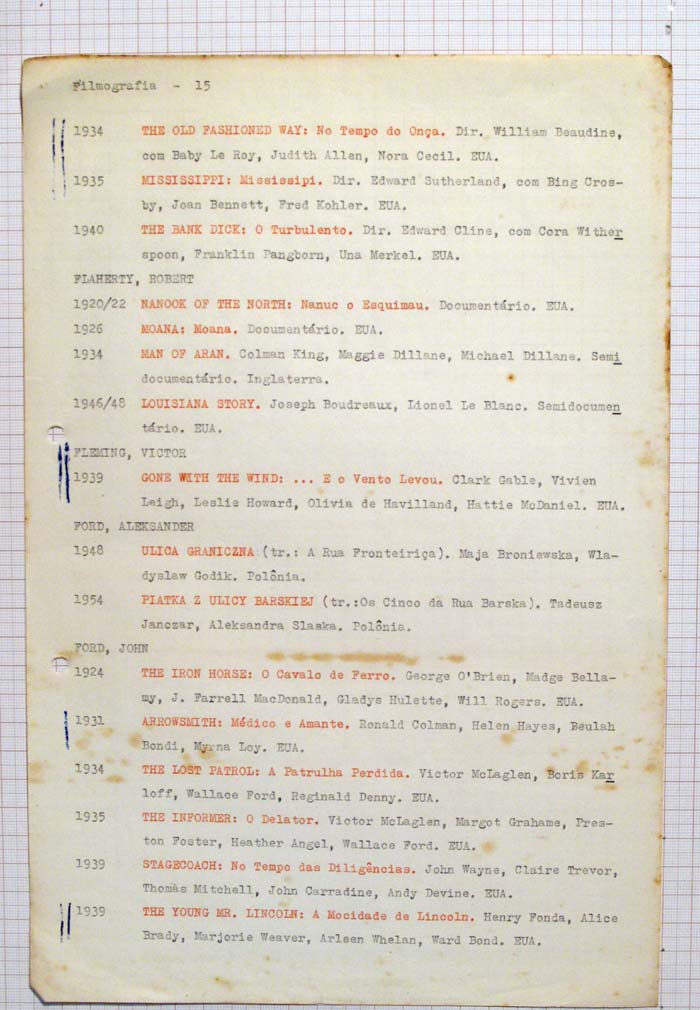 Filmografia - 15
1934 THE OLD FASHIONED WAY: No Tempo do Onça. Dir. William Beaudine,
com Baby Le Roy, Judith Allen, Nora Cecil. EUA.
1935 MISSISSIPPI: Mississipi. Dir. Edward Sutherland, com Bing Cros-
by, Joan Bennett, Fred Kohler. EUA.
1940 THE BANK DICK: O Turbulento. Dir. Edward Cline, com Cora Wither
spoon, Franklin Pangborn, Una Merkel. EUA.
FLAHERTY, ROBERT
1920/22 NANOOK OF THE NORTH: Nanuc o Esquimau. Documentário. EUA.
1926 MOANA: Moana. Documentário. EUA.
1934 MAN OF ARAN. Colman King, Maggie Dillane, Michael Dillane. Semi
documentário. Inglaterra.
1946/48 LOUISIANA STORY. Joseph Boudreaux, Lionel Le Blanc. Semidocumen
tário. EUA.
FLEMING, VICTOR
1939 GONE WITH THE WIND: ... E o Vento Levou. Clark Gable, Vivien
Leigh, Leslie Howard, Olivia de Havilland, Hattie McDaniel. EUA.
FORD, ALEKSANDER
1948 ULICA GRANICZNA (tr.: A Rua Fronteiriça). Maja Broniewska, Wla-
dyslaw Godik. Polônia.
1954 PIATKA Z ULICY BARSKIEJ (tr.:Os Cinco da Rua Barska). Tadeusz
Janczar, Aleksandra Slaska. Polônia.
FORD, JOHN
1924 THE IRON HORSE: O Cavalo de Ferro. George O'Brien, Madge Bella-
my, J. Farrell MacDonald, Gladys Hulette, Will Rogers. EUA.
1931 ARROWSMITH: Médico e Amante. Ronald Colman, Helen Hayes, Beulah
Bondi, Myrna Loy. EUA.
1934 THE LOST PATROL: A Patrulha Perdida. Victor McLaglen, Boris Kar
loff, Wallace Ford, Reginald Denny. EUA.
1935 THE INFORMER: O Delator. Victor McLaglen, Margot Grahame, Pres-
ton Foster, Heather Angel, Wallace Ford. EUA.
1939 STAGECOACH: No Tempo das Diligências. John Wayne, Claire Trevor,
Thomas Mitchell, John Carradine, Andy Devine. EUA.
1939 THE YOUNG MR. LINCOLN: A Mocidade de Lincoln. Henry Fonda, Alice
Brady, Marjorie Weaver, Arleen Whelan, Ward Bond. EUA.